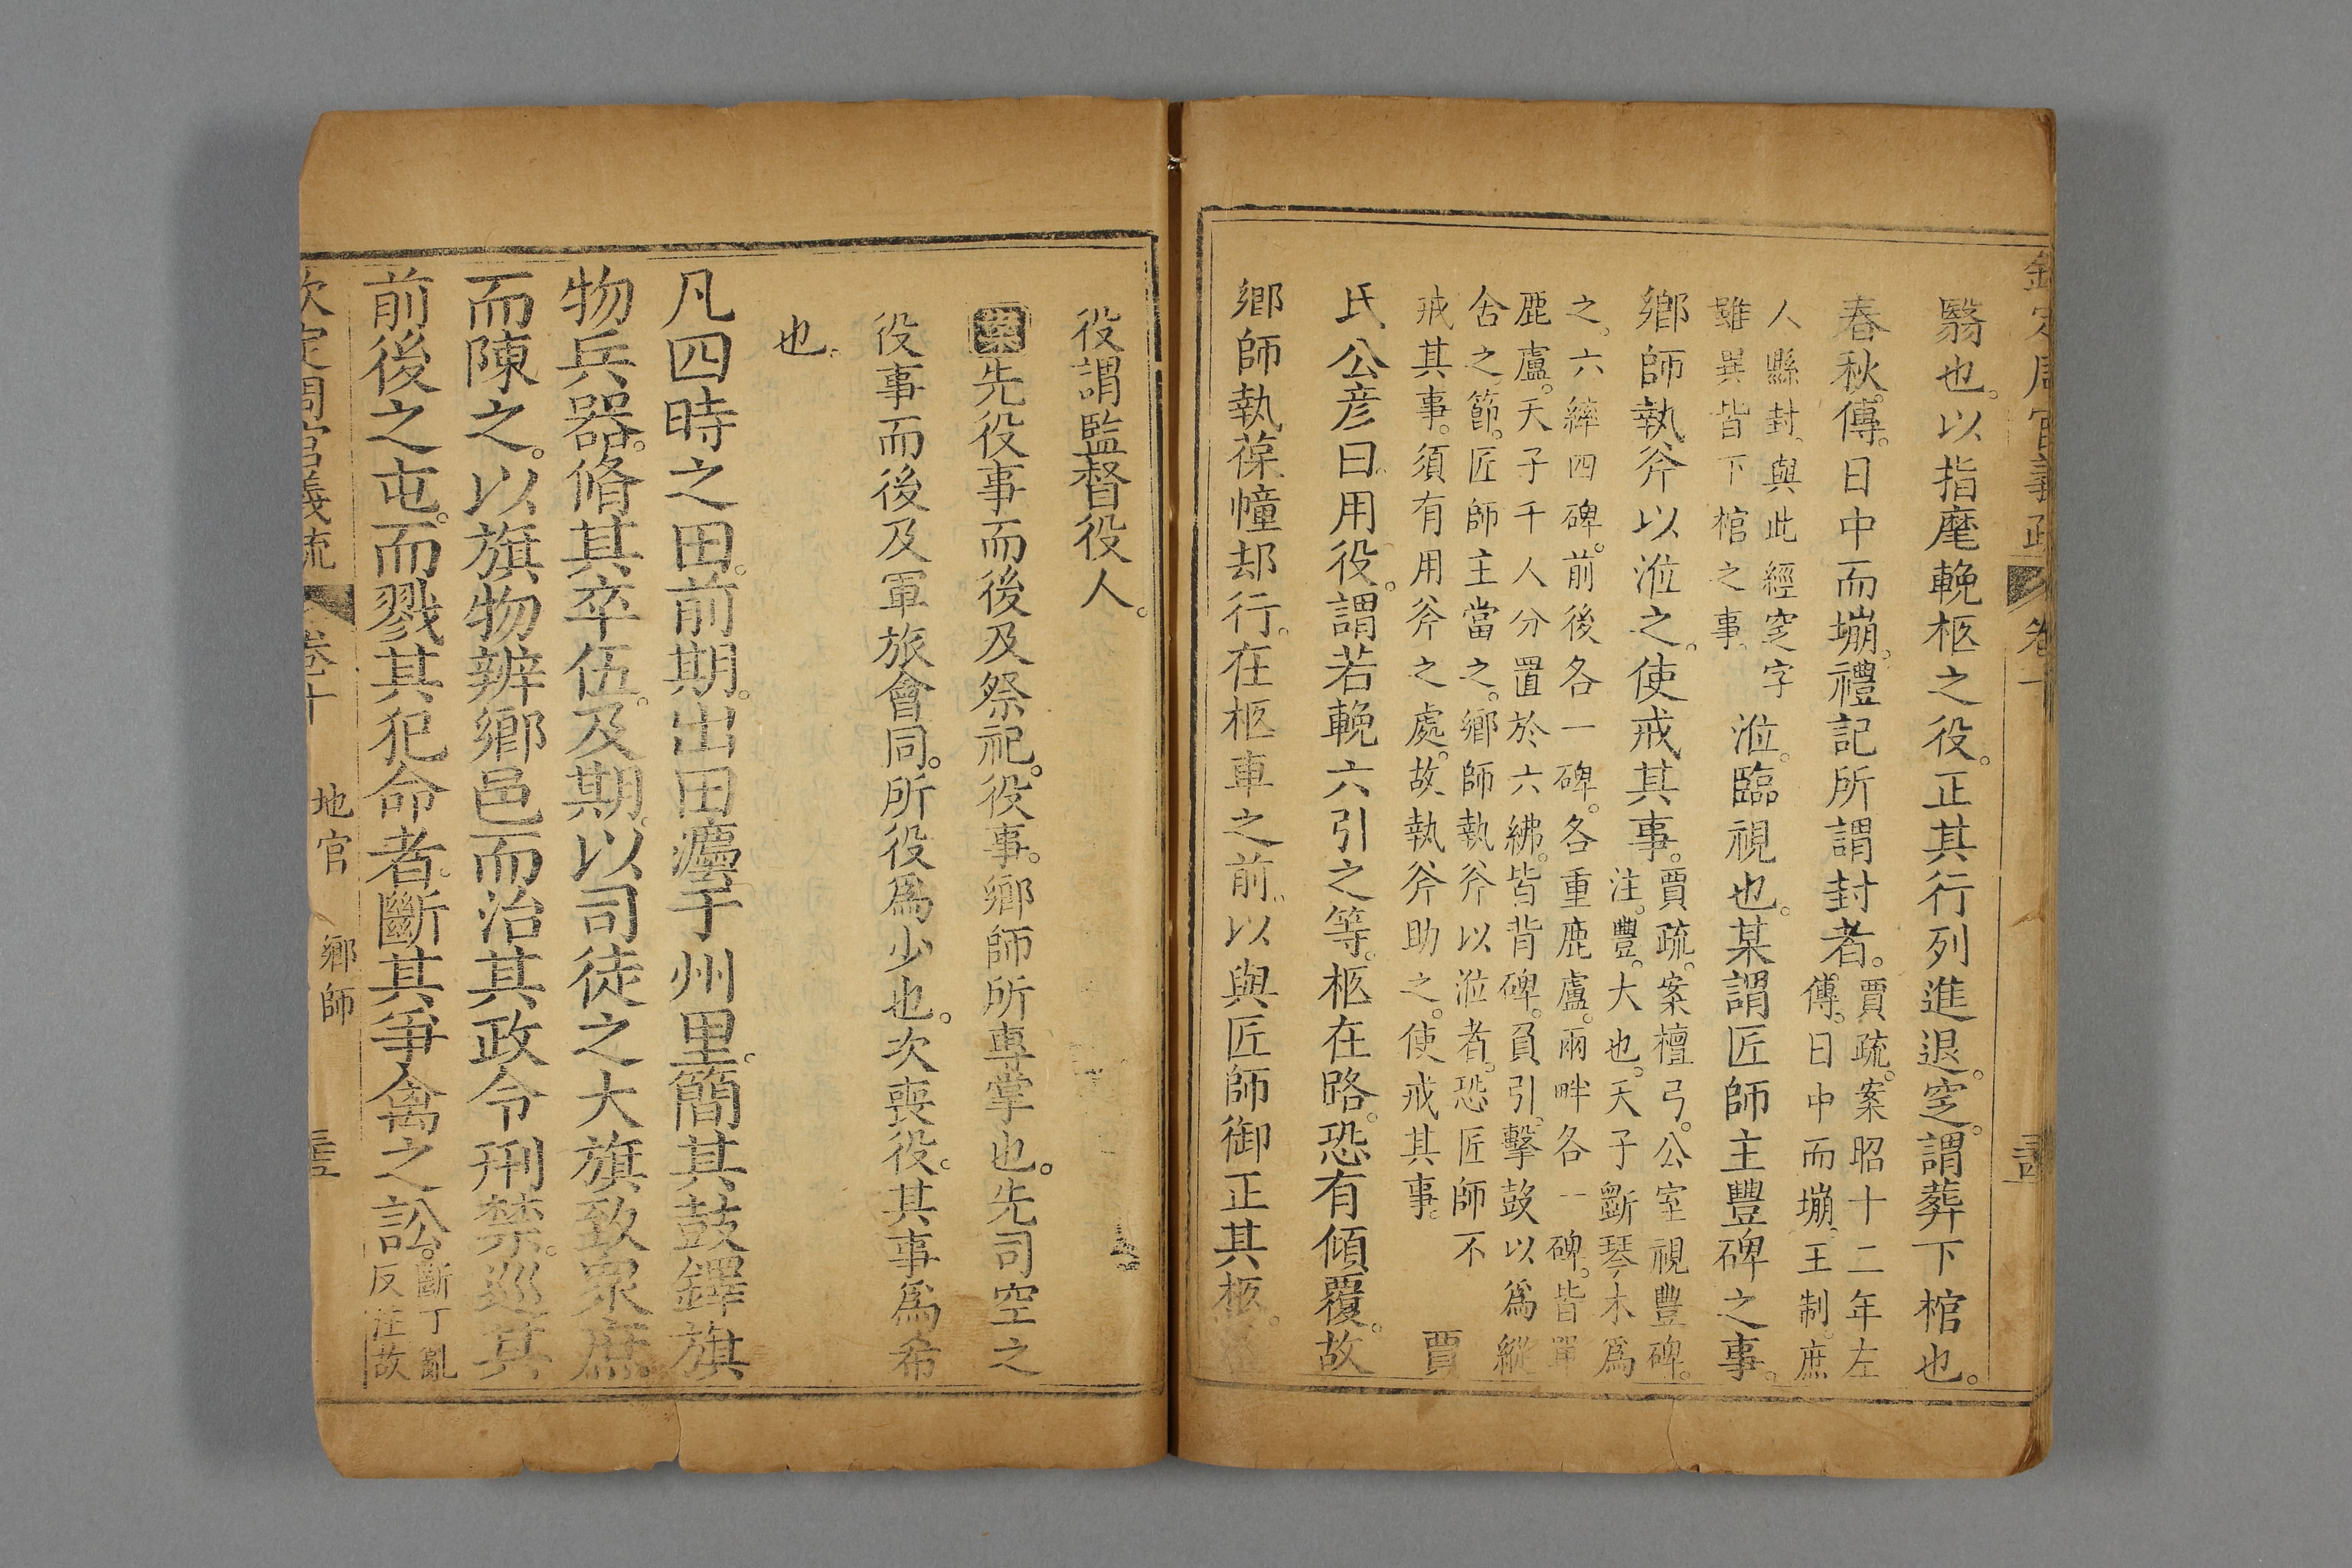 翳也。以指麾輓柩之役。正其行列進退。窆。謂葬下棺也。
春秋。傳。日中而塴。禮記所謂封者。
賈疏。案昭十二年左
傳。日中而塴。王制。庶
人縣封。與此經窆字
雖異皆下棺之事。
涖。臨視也。某謂匠師主豐碑之事。
鄉師執斧以涖之。使戒其事。
賈疏。案檀弓。公室視豐碑。
注。豐。大也。天子斲琴木爲
之。六繂四碑。前後各一碑。各重鹿盧。兩畔各一碑。皆單
鹿盧。天子千人分置於六紼。皆背碑。負引。擊鼓以爲縱
舍之節。匠師主當之。鄉師執斧以涖者。恐匠師不
戒其事。須有用斧之處。故執斧助之。使戒其事。
賈
氏公彦曰。用役。謂若輓六引之等。柩在路。恐有傾覆。故
鄉師執葆幢却行。在柩車之前。以與匠師御正其柩。
役謂監督役人。
案先役事而後及祭祀。役事。鄉師所專掌也。先司空之
役事而後及軍旅會同。所役爲少也。次喪役。其事爲希
也。
凡四時之田。前期。出田灋于州里。簡其鼓鐸旗
物兵器。脩其卒伍。及期。以司徒之大旗致眾庶。
而陳之。以旗物辨鄉邑而治其政令刑禁。巡其
前後之屯。而戮其犯命者。斷其爭禽之訟。
斷丁亂
反注故
欽定周官義疏
卷十
地官
鄉師